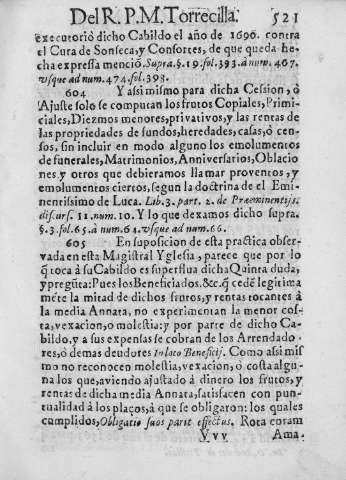 Del R. P. M. Torrecilla. 521
executoriò dicho Cabildo el año de 1696. contra
el Cura de Sonseca, y Consortes, de que queda he-
cha expressa menciõ. Supra. §. 19. fol. 393. à num. 467.
vsque ad num. 474. fol. 398.
604 Y assi mismo para dicha Cession, ò
Ajuste solo se computan los frutos Copiales, Primi-
ciales, Diezmos menores, privativos, y las rentas de
las propriedades de fundos, heredades, casas, ò cen-
sos, sin incluir en modo alguno los emolumentos
de funerales, Matrimonios, Anniversarios, Oblacio
nes, y otros que debieramos llamar proventos, y
emolumentos ciertos, segun la doctrina de el Emi-
nentissimo de Luca. Lib. 3. part. 2. de Præeminentijs.
discurs. 11. num. 10. Y lo que dexamos dicho supra.
§. 3. fol. 65. à num. 64. vsque ad num. 66.
605 En suposicion de esta practica obser-
vada en esta Magistral Yglesia, parece que por lo
q̃ toca à su Cabildo es superflua dicha Quinta duda,
y pregũta: Pues los Beneficiados. &c. q̃ cedẽ legitima
mẽte la mitad de dichos frutos, y rentas tocantes à
la media Annata, no experimentan la menor cos-
ta, vexacion, o molestia: y por parte de dicho Ca-
bildo, y a sus expensas se cobran de los Arrendado
res, ó demas deudores In loco Beneficij. Como assi mis
mo no reconocen molestia, vexacion, ò costa algu-
na los que, aviendo ajustado à dinero los frutos, y
rentas de dicha media Annata, satisfacen con pun-
tualidad à los plaços, à que se obligaron: los quales
cumplidos, Obligatio suos parit effectus. Rota coram
Vvv Ama-